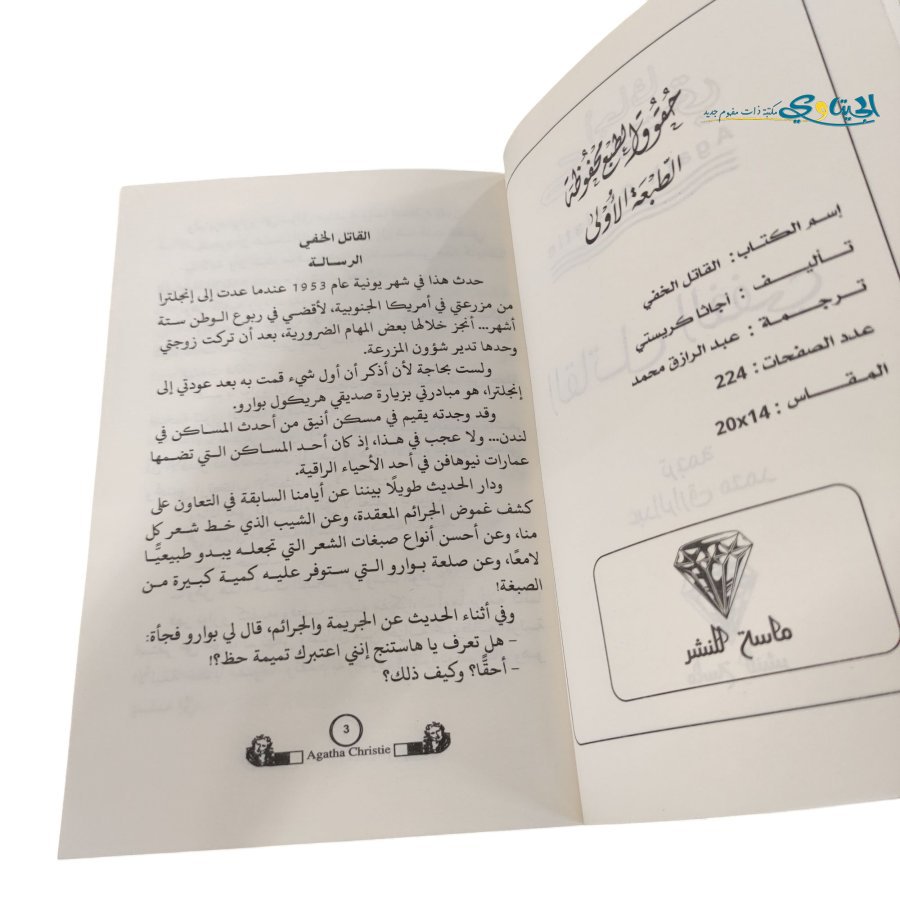 الجيتاوي مكتبة ذات مفهوم جديد
حُقوُق الطبْع مَحْفُوظَة
الطّبْعَة الأُولى
إسم الكتاب: القاتل الخفي
تأليف: اجاثا كريستي
ترجمة: عبد الرازق محمد
عدد الصفحات: 224
المقاس: 14×20
ماسة للنشر
القاتل الخفي
الرسالة
حدث هذا في شهر يونية عام 1953 عندما عدت إلى إنجلترا
من مزرعتي في أمريكا الجنوبية، لأقضي في ربوع الوطن ستة
أشهر... أنجز خلالها بعض المهام الضرورية، بعد أن تركت زوجتي
وحدها تدير شؤون المزرعة.
ولست بحاجة لأن أذكر أن أول شيء قمت به بعد عودتي إلى
إنجلترا، هو مبادرتي بزيارة صديقي هريكول بوارو.
وقد وجدته يقيم في مسكن أنيق من أحدث المساكن في
لندن... ولا عجب في هذا، إذ كان أحد المساكن التي تضمها
عمارات نيوهافن في أحد الأحياء الراقية.
ودار الحديث طويلًا بيننا عن أيامنا السابقة في التعاون على
كشف غموض الجرائم المعقدة، وعن الشيب الذي خط شعر كل
منا، وعن أحسن أنواع صبغات الشعر التي تجعله يبدو طبيعيًّا
لامعًا، وعن صلعة بوارو التي ستوفر عليه كمية كبيرة من
الصبغة!
وفي أثناء الحديث عن الجريمة والجرائم، قال لي بوارو فجأة:
– هل تعرف يا هاستنج إنني اعتبرك تميمة حظ؟!
– أحقًّا؟ وكيف ذلك؟
3
Agatha Christie